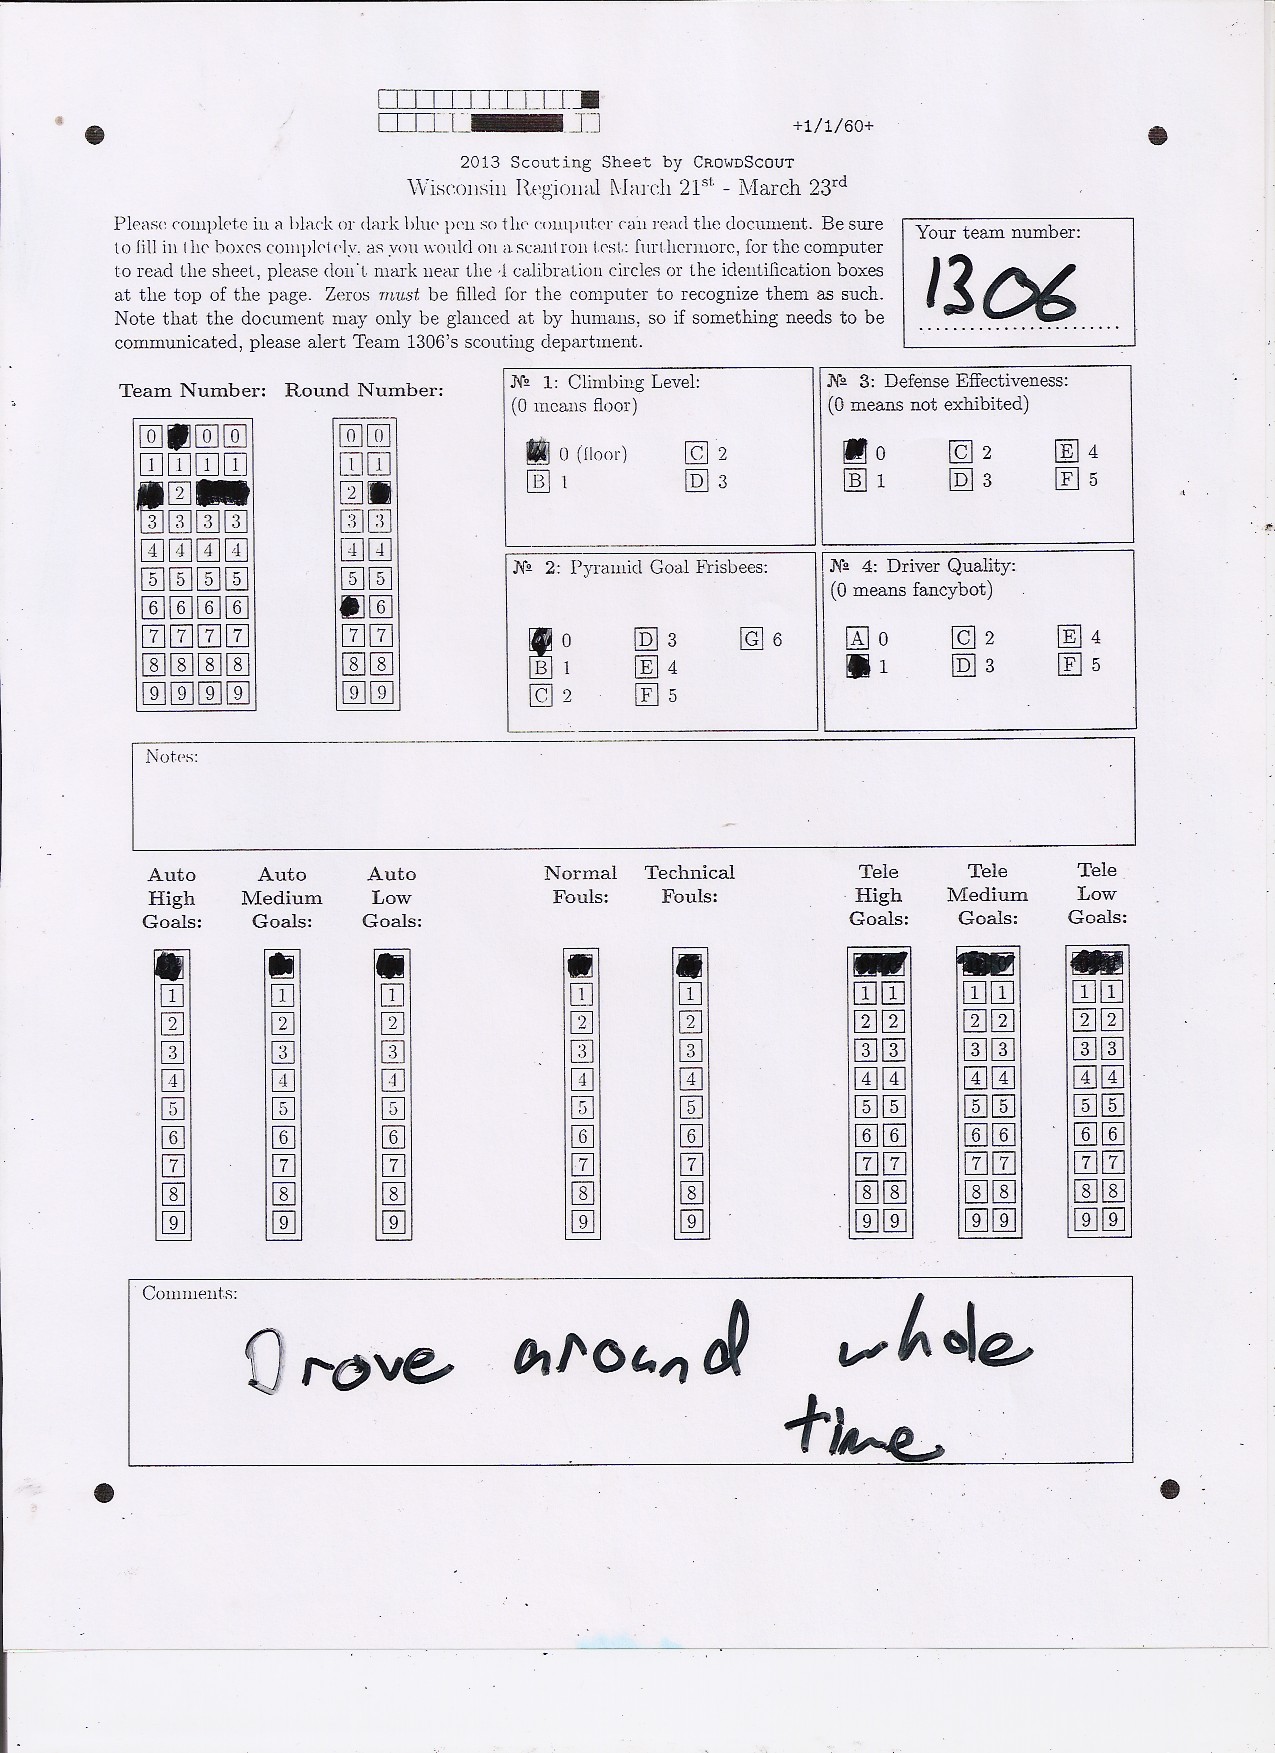 +1/1/60+
2013 Scouting Sheet by CROWDSCOUT
Wisconsin Regional March 21st - March 23rd
Please complete in a black or dark blue pen so the computer can read the document. Be sure
to fill in the boxes completely, as you would on a scantron test; furthermore, for the computer
to read the sheet, please don't mark near the 4 calibration circles or the identification boxes
at the top of the page. Zeros must be filled for the computer to recognize them as such.
Note that the document may only be glanced at by humans, so if something needs to be
communicated, please alert Team 1306's scouting department.
Your team number:
1306
Team Number: Round Number:
0 0 0 0 0
1 1 1 1 1 1
2 2
3 3 3 3 3 3
4 4 4 4 4 4
5 5 5 5 5 5
6 6 6 6 6
7 7 7 7 7 7
8 8 8 8 8 8
9 9 9 9 9 9
№ 1: Climbing Level:
(0 means floor)
0 (floor) C 2
B 1 D 3
№ 3: Defense Effectiveness:
(0 means not exhibited)
0 C 2 E 4
B 1 D 3 F 5
№ 2: Pyramid Goal Frisbees:
0 D 3 G 6
B 1 E 4
C 2 F 5
№ 4: Driver Quality:
(0 means fancybot)
A 0 C 2 E 4
1 D 3 F 5
Notes:
Auto Auto Auto Normal Technical Tele Tele Tele
High Medium Low Fouls: Fouls: High Medium Low
Goals: Goals: Goals: Goals: Goals: Goals:
1 1 1 1 1 1 1 1 1 1 1
2 2 2 2 2 2 2 2 2 2 2
3 3 3 3 3 3 3 3 3 3 3
4 4 4 4 4 4 4 4 4 4 4
5 5 5 5 5 5 5 5 5 5 5
6 6 6 6 6 6 6 6 6 6 6
7 7 7 7 7 7 7 7 7 7 7
8 8 8 8 8 8 8 8 8 8 8
9 9 9 9 9 9 9 9 9 9 9
Comments:
Drove around whole
time